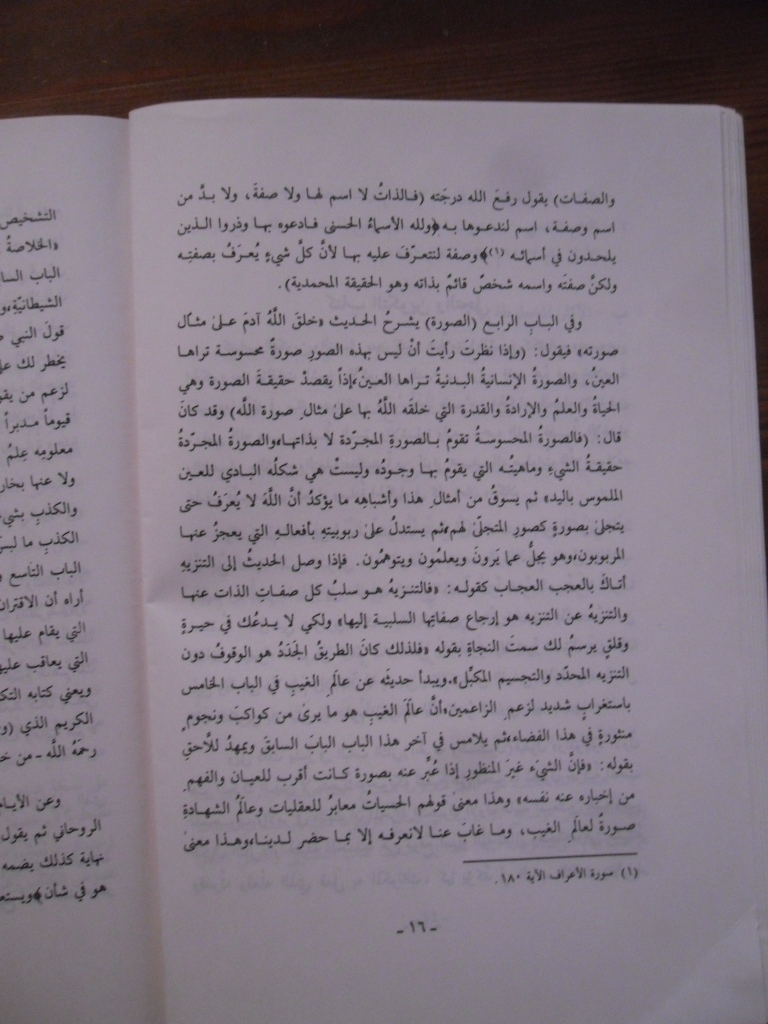 والصفات) يقول رفعَ الله درجَته (فالذاتُ لا اسم لها ولا صفةَ، ولا بدَّ من
اسم وصفة، اسم لندعوها به ﴿ولله الأسماءُ الحسنى فادعوه بها وذروا الذين
يلحدون في أسمائه (١)﴾ وصفة لنتعرّفَ عليه بها لأنَّ كلَّ شيءٍ يُعرَفُ بصفتِه
ولكنَّ صفتَه واسمه شخصٌ قائمٌ بذاته وهو الحقيقة المحمدية).
وفي البابِ الرابع (الصورة) يشرحُ الحديث «خلقَ اللَّهُ آدمَ على مثال
صورته» فيقول: (وإذا نظرتَ رأيتَ أنْ ليس بهذه الصورِ صورةٌ محسوسة تراها
العينُ، والصورةُ الإنسانيةُ البدنيةُ تراها العينُ، إذاً يقصدُ حقيقةَ الصورة وهي
الحياةُ والعلمُ والإرادةُ والقدرة التي خلقَه اللَّهُ بها على مثال صورة اللَّه) وقد كانَ
قال: (فالصورةُ المحسوسةُ تقومُ بالصورةِ المجرّدة لا بذاتها، والصورةُ المجرّدةُ
حقيقةُ الشيءِ وماهيتُه التي يقومُ بها وجودُه وليستْ هي شكلُه البادي للعين
الملموس باليد» ثم يسوقُ من أمثال هذا وأشباهِه ما يؤكدُ أنَّ اللَّهَ لا يُعرَفُ حتى
يتجلىٰ بصورةٍ كصورِ المتجلّىٰ لهم، ثم يستدلُ علىٰ ربوبيتهِ بأفعالهِ التي يعجزُ عنها
المربوبون، وهو يجلُّ عما يَرونَ ويعلمُون ويتوهمُون. فإذا وصل الحديثُ إلى التنزيهِ
أتاكَ بالعجب العجاب كقوله: «فالتنزيهُ هو سلبُ كل صفاتِ الذات عنها
والتنزيهُ عن التنزيه هو إرجاع صفاتِها السلبية إليها» ولكي لا يدعُك في حيرةٍ
وقلقٍ يرسمُ لك سمتَ النجاةِ بقوله «فلذلك كانَ الطريقُ الجَدَدُ هو الوقوفُ دون
التنزيه المحدّد والتجسيم المكبِّل». ويبدأ حديثَه عن عالَمِ الغيبِ في الباب الخامس
باستغرابٍ شديد لزعمِ الزاعمين، أنَّ عالَمَ الغيبِ هو ما يرىٰ من كواكبَ ونجومٍ
منثورةٍ في هذا الفضاء، ثم يلامس في آخر هذا الباب البابَ السابقَ ويمهدُ للَّاحقِ
بقوله: «فإنَّ الشيءَ غيرَ المنظورِ إذا عُبِّرَ عنه بصورة كانت أقرب للعيان والفهمِ
من إخباره عنه نفسه» وهذا معنىٰ قولهم الحسياتُ معابرُ للعقليات وعالَمُ الشهادةِ
صورةٌ لعالَمِ الغيب، وما غابَ عنا لانعرفه إلا بما حضر لدينا، وهذا معنىٰ
(١) سورة الأعراف الآية ١٨٠.
- ١٦ -
التشخيص
«الخلاصةُ
الباب السا
الشيطانيّةِ، و
قولَ النبي
يخطر لك عل
لزعم من يقو
قيوماً مدبراً
معلومِه عِلمُ
ولا عنها بخار
والكذب بشي
الكذب ما ليس
الباب التاسع و
أراه أن الاقتران
التي يقام عليها
التي يعاقب عليه
ويعني كتابه التك
الكريم الذي (و
رحمَهُ اللَّه - من خ
وعن الأيـا
الروحاني ثم يقول
نهاية كذلك يضمه
هو في شأن﴾ ويستع